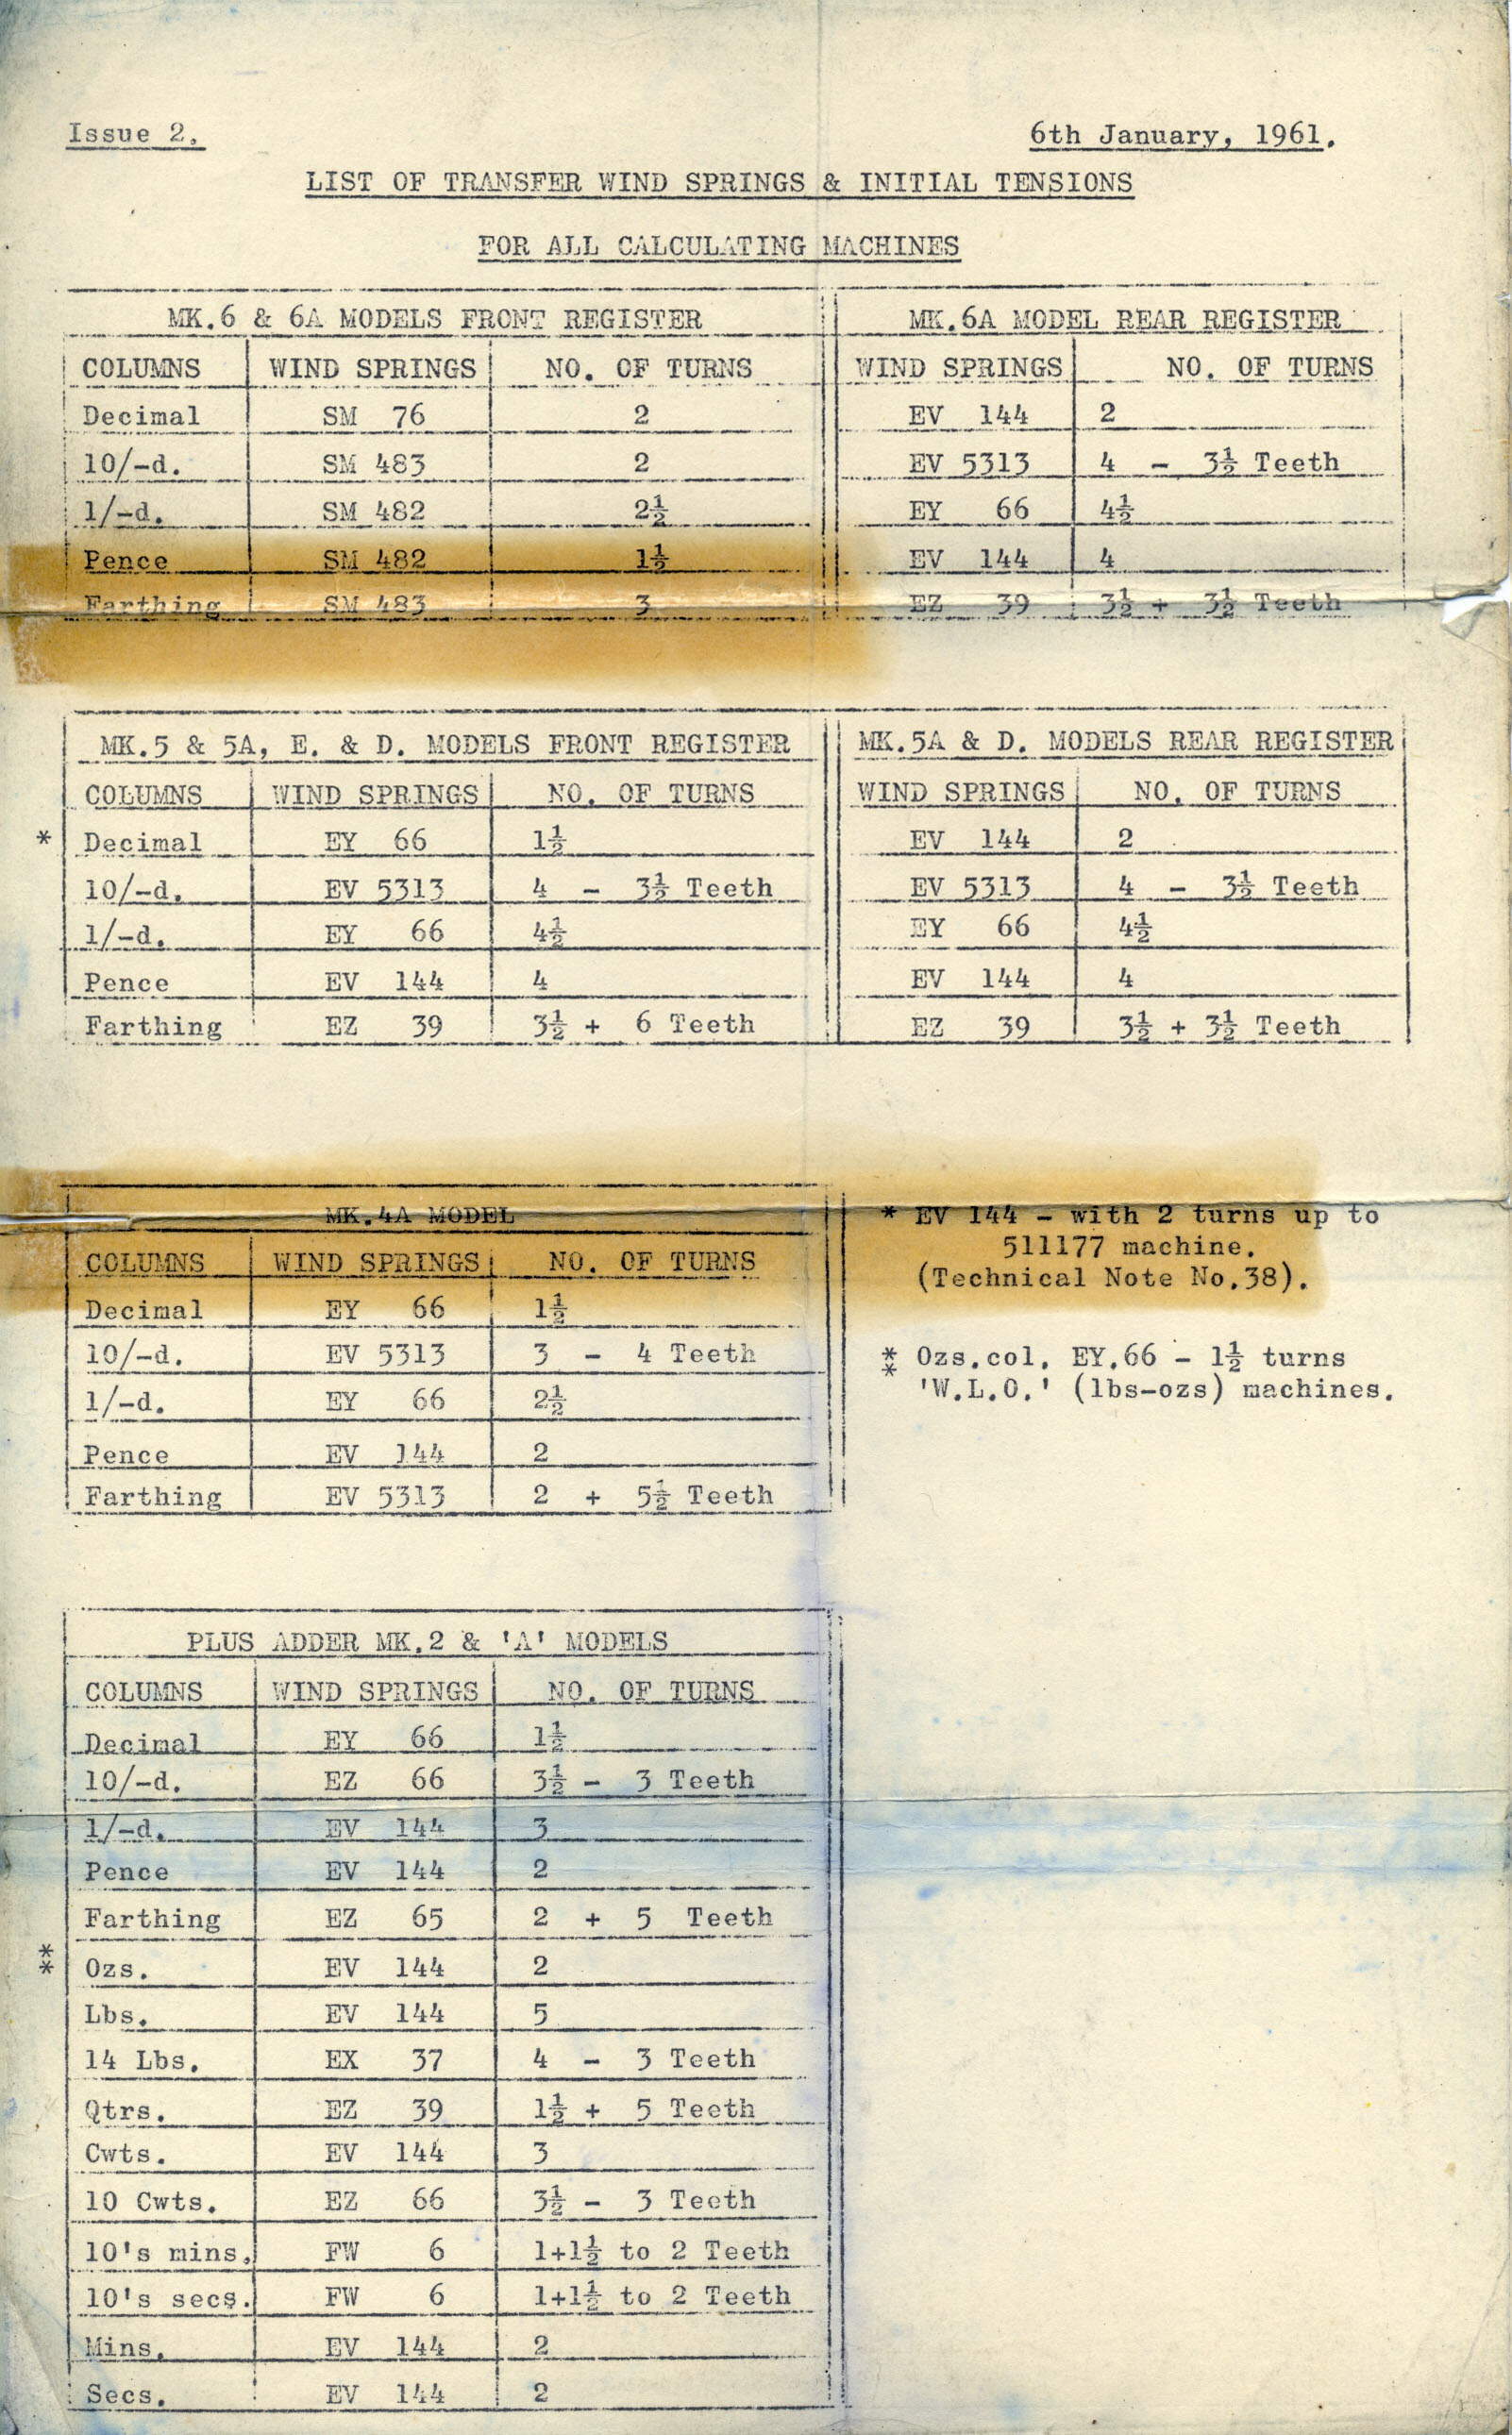 Issue 2. 6th January, 1961.
LIST OF TRANSFER WIND SPRINGS & INITIAL TENSIONS
FOR ALL CALCULATING MACHINES
MK.6 & 6A MODELS FRONT REGISTER MK.6A MODEL REAR REGISTER
COLUMNS WIND SPRINGS NO. OF TURNS WIND SPRINGS NO. OF TURNS
Decimal SM 76 2 EV 144 2
10/-d. SM 483 2 EV 5313 4 - 3½ Teeth
1/-d. SM 482 2½ EY 66 4½
Pence SM 482 1½ EV 144 4
Farthing SM 483 3 EZ 39 3½ + 3½ Teeth
MK.5 & 5A, E. & D. MODELS FRONT REGISTER MK.5A & D. MODELS REAR REGISTER
COLUMNS WIND SPRINGS NO. OF TURNS WIND SPRINGS NO. OF TURNS
* Decimal EY 66 1½ EV 144 2
10/-d. EV 5313 4 - 3½ Teeth EV 5313 4 - 3½ Teeth
1/-d. EY 66 4½ EY 66 4½
Pence EV 144 4 EV 144 4
Farthing EZ 39 3½ + 6 Teeth EZ 39 3½ + 3½ Teeth
MK.4A MODEL
COLUMNS WIND SPRINGS NO. OF TURNS
Decimal EY 66 1½
10/-d. EV 5313 3 - 4 Teeth
1/-d. EY 66 2½
Pence EV 144 2
Farthing EV 5313 2 + 5½ Teeth
* EV 144 - with 2 turns up to
511177 machine.
(Technical Note No.38).
** Ozs.col. EY.66 - 1½ turns
'W.L.O.' (lbs-ozs) machines.
PLUS ADDER MK.2 & 'A' MODELS
COLUMNS WIND SPRINGS NO. OF TURNS
Decimal EY 66 1½
10/-d. EZ 66 3½ - 3 Teeth
1/-d. EV 144 3
Pence EV 144 2
Farthing EZ 65 2 + 5 Teeth
** Ozs. EV 144 2
Lbs. EV 144 5
14 Lbs. EX 37 4 - 3 Teeth
Qtrs. EZ 39 1½ + 5 Teeth
Cwts. EV 144 3
10 Cwts. EZ 66 3½ - 3 Teeth
10's mins. FW 6 1+1½ to 2 Teeth
10's secs. FW 6 1+1½ to 2 Teeth
Mins. EV 144 2
Secs. EV 144 2